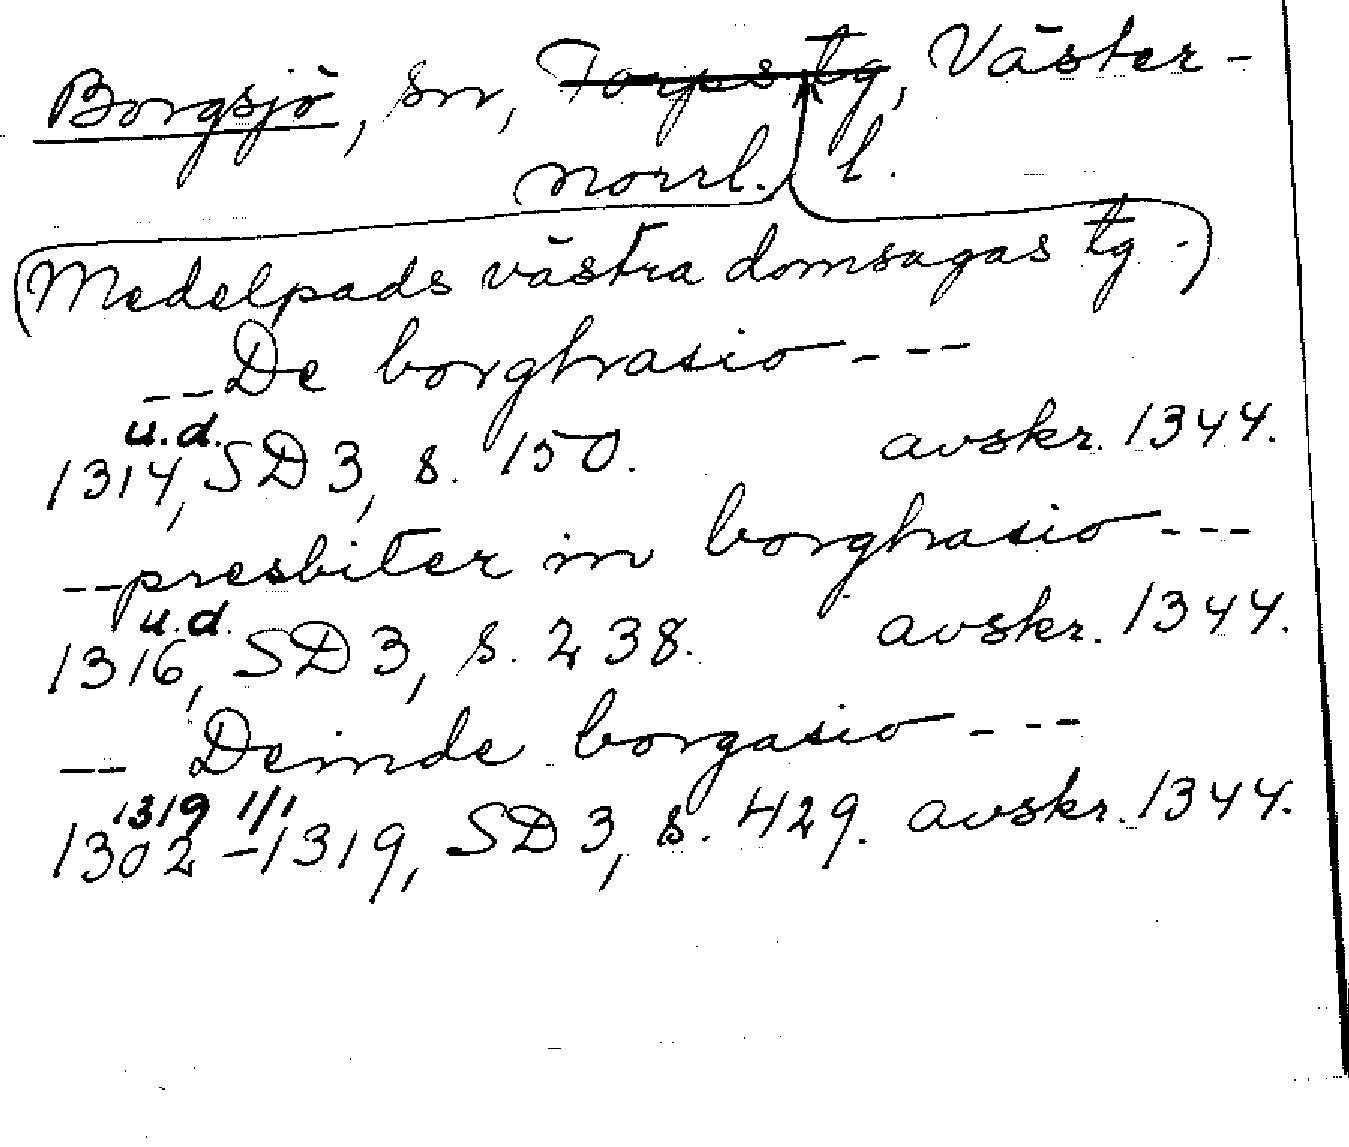 Borgsjö, sn, Torps tg, Väster-
norrl. l.
(Medelpads västra domsagas tg.)
--De borghrasio---
u.d.
1314, SD 3, s. 150. avskr. 1344.
--presbiter in borghrasio---
u.d.
1316, SD 3, s. 238. avskr. 1344.
-- Deinde borgasio---
1319 1/1
1302-1319, SD 3, s. 429. avskr. 1344.